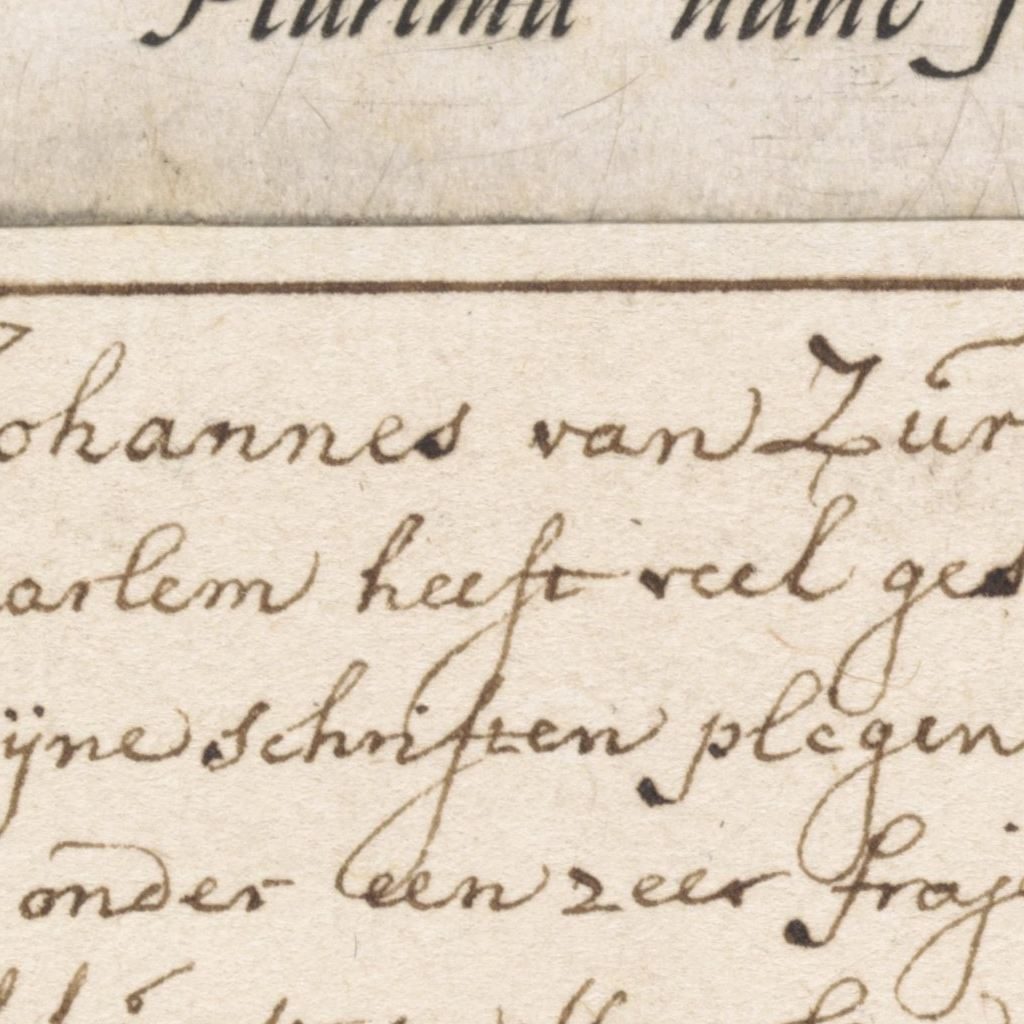 Plurima nanc
Johannes van Zur
aarlem heeft veel ges
ijne schriften plegen
onder een zeer fraj